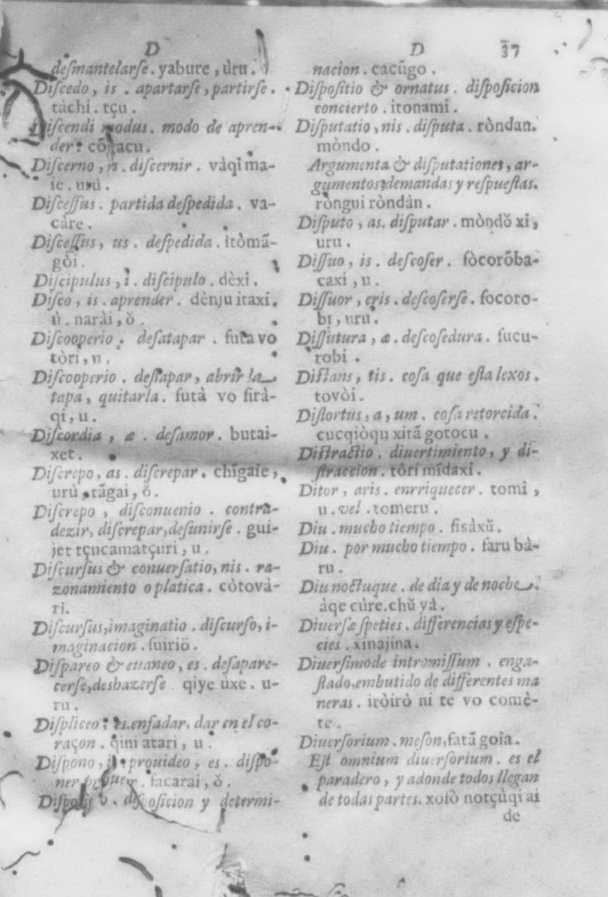 D
desmantelarse. yabure, uru.
Discedo, is. apartarse, partirse.
tàchi. tçu.
Discendi modus. modo de apren-
der.
Discerno, is. discernir. vàqima-
ie. uru.
Discessus. partida despedida. va-
càre.
Discessus, us. despedida. itòmã-
gòi.
Discipulus, i. discipulo. dèxi.
Disco, is. aprender. dènju itaxi.
ù. narài, ŏ.
Discooperio. desatapar. futavo
tòri, u.
Discooperio. destapar, abrir la
tapa, quitarla. futà vo firà-
qi, u.
Discordia, æ. desamor. butai-
xet.
Discrepo, as. discrepar. chĩgaie,
uru, tãgai, ŏ.
Discrepo, disconuenio. contra-
dezir, discrepar, desunirse. gui-
jet tçucamatçuri, u.
Discursus & conuersatio, nis. ra-
zonamiento o platica. còtovà-
ri.
Discursus, imaginatio. discurso, i-
maginacion. suiriŏ.
Dispareo & euaneo, es. desapare-
cerse, deshazerse qiye uxe. u-
ru.
Displiceo, es. enfadar. dar en el co-
raçon. qini atari, u.
Dispono, prouideo, es. dispo-
ner facarai, ŏ.
disposicion y determi-
D 37
nacion. cacũgo.
Dispositio & ornatus. disposicion
concierto. itonami.
Disputatio, nis. disputa. ròndan.
mòndo.
Argumenta & disputationes, ar-
gumentos, demandas y respuestas.
ròngui ròndàn.
Disputo, as. disputar. mòndŏ xi,
uru.
Dissuo, is. descoser. fòcorŏba-
caxi, u.
Dissuor, eris. descoserse. focoro-
bi, uru.
Dissutura, æ. descosedura. fucu-
robi.
Distans, tis. cosa que esta lexos.
tovòi.
Distortus, a, um. cosa retorcida.
cucqiòqu xitã gotocu.
Distractio. divertimiento, y di-
straccion. tôri mĩdaxi.
Ditor, aris. enrriquecer. tomi,
u. vel. tomeru.
Diu. mucho tiempo. fisàxũ.
Diu. por mucho tiempo. faru bà-
ru.
Diu noctuque. de dia y de noche.
àqe cùre. chũ yà.
Diuersæ speties. differencias y espe-
cies. xinajina.
Diuersimode intromissum. enga-
stado, embutido de differentes ma
neras. iròirò ni te vo comè-
te.
Diuersorium. meson, fatã goia.
Est omnium diuersorium. es el
paradero, y adonde todos llegan
de todas partes. xofò notçùqi ai
de